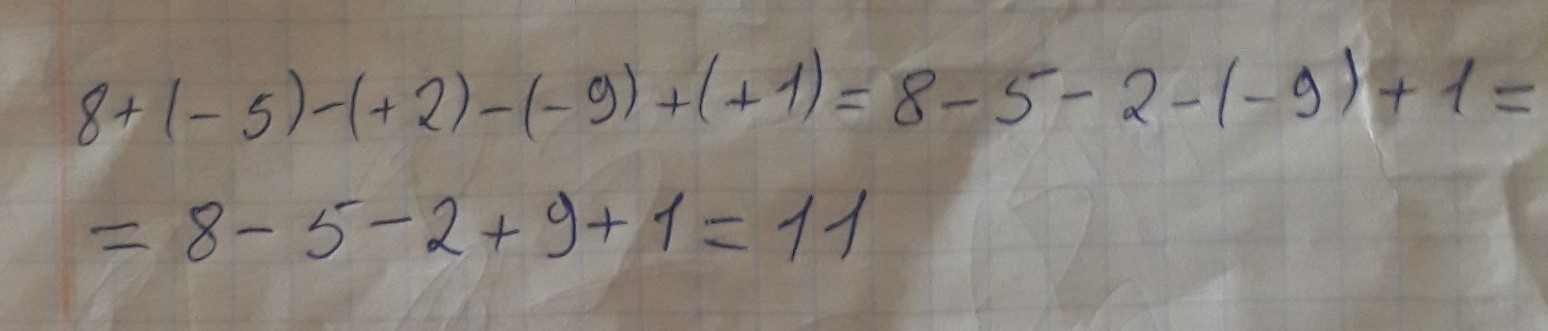 8+(-5)-(+2)-(-9)+(+1)=8-5-2-(-9)+1=
=8-5-2+9+1=11